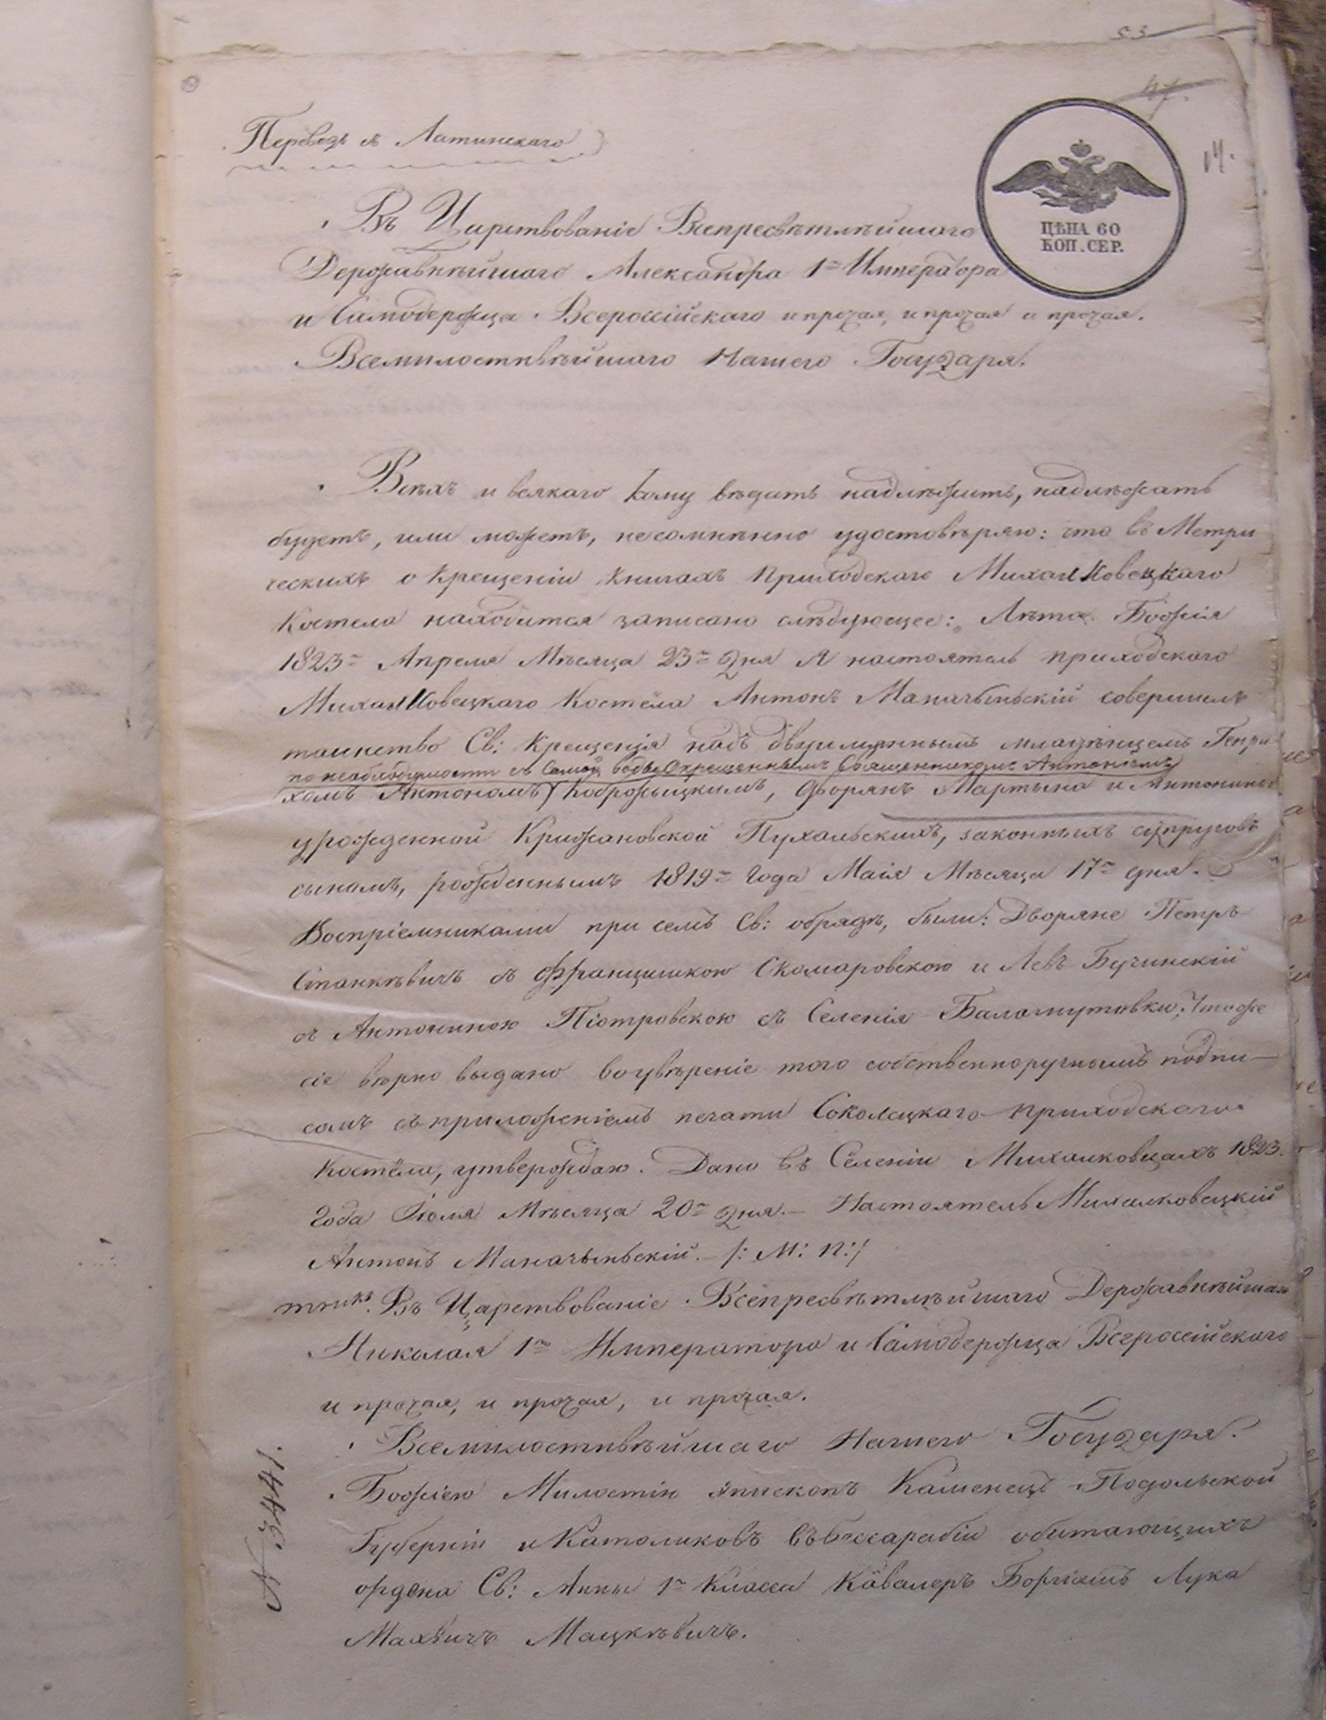 53
47.
14.
Переводъ съ Латинскаго
ЦѢНА 60
КОП. СЕР.
Въ Царствованіе Всепресвѣтлѣйшаго
Державнѣйшаго Александра 1го Императора
и Самодержца Всероссійскаго и прочая, и прочая и прочая.
Всемилостивѣйшаго Нашего Государя.
Всѣхъ и всякаго кому вѣдать надлѣжитъ, надлѣжать
будетъ, или можетъ, несомнѣнно удостовѣряю: что въ Метри
ческихъ о крещеніи книгахъ Приходскаго Михалковецкаго
Костела находится записано слѣдующее: „Лѣта Божія
1823го Апреля Мѣсяца 23го дня Я настоятель приходскаго
Михалковецкаго Костёла Антонъ Маначыньскій совершилъ
таинство Св: Крещенія надъ двуимяннымъ младѣнцемъ Генри
по необходимости съ самой воды Окрещеннымъ Священникомъ Антоніемъ
хомъ Антономъ, дворянъ Мартына и Антонины
урожденной Крижановской Пухальскихъ, законныхъ супруговъ
сыномъ, рожденнымъ 1819го Года Маія Мѣсяца 17го дня.
Воспріемниками при семъ Св: обрядѣ, были: Дворяне Петръ
Станкѣвичъ съ Францишкою Скомаровскою и Левъ Бучинскій
съ Антониною Піотровскою съ Селенія Баламутовки; Что же
сіе вѣрно выдано во увѣреніе того собственноручнымъ подпи-
сомъ съ приложеніемъ печати Соколецкаго приходскаго
Костёла, утверждаю. Дано въ Селеніи Михалковцахъ 1823.
Года Іюля Мѣсяца 20го дня. – Настоятель Михалковецкій
Антонъ Маначыньскій. /: М: П:/
Въ Царствованіе Всепресвѣтлѣйшаго Державнѣйшаго
Николая 1го Императора и Самодержца Всероссійскаго
и прочая, и прочая, и прочая.
Всемилостивѣйшаго Нашего Государя.
Божіею Милостію Епископъ Каменецъ Подольской
Губерніи и Католиковъ въ Бессарабіи обитающихъ
ордена Св: Анны 1го Класса Кавалеръ Боргіашъ Лука
Мацкѣвичъ.
N 3441.